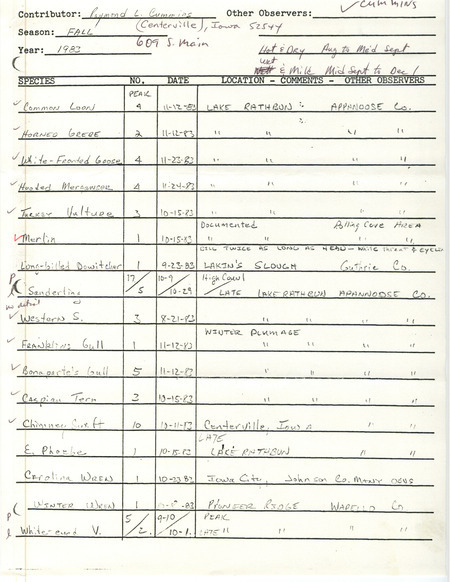 ✓ CUMMINS
Contributor: Raymond L. Cummins Other Observers:
(Centerville), Iowa 52544
Season: FALL
609 S. Main
Year: 1983 Hot & Dry Aug to Mid Sept
Wet & Mild Mid Sept to Dec 1
SPECIES NO. DATE LOCATION - COMMENTS - OTHER OBSERVERS
PEAK
✓ Common Loon 4 11-12-83 LAKE RATHBUN APPANOOSE Co.
✓ HORNED GREBE 2 11-12-83 " " " "
✓ White-Fronted Goose 4 11-23-83 " " " "
✓ Hooded Merganser 4 11-24-83 " " " "
✓ Turkey Vulture 3 10-15-83 " " " "
Documented Rolling Cove AREA
✓ Merlin 1 10-15-83 " " " "
BILL TWICE AS LONG AS HEAD
Long-billed Dowitcher 1 9-23-83 LAKIN'S SLOUGH Guthrie Co.
P 17/ 10-9/ High Count
L Sanderling /5 /10-29 /LATE LAKE RATHBUN APPANOOSE CO.
✓ Western S. 3 8-21-83 " " " "
WINTER PLUMAGE
✓ FRANKLINS Gull 1 11-12-83 " " " "
✓ Bonaparte's Gull 5 11-12-83 " " " "
✓ Caspian Tern 3 10-15-83 " " " "
✓ Chimney Swift 10 10-11-83 Centerville, Iowa "
LATE
E. Phoebe 1 10-15-83 LAKE RATHBUN " "
Carolina WREN 1 10-23-83 Iowa City, Johnson Co.
WINTER WREN 1 PIONEER RIDGE WAPELLO Co
P 5/ 9-10/ PEAK
L White-eyed V. /2 /10-1 LATE " " " "